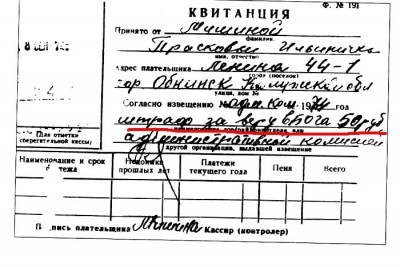 Ф. № 191
КВИТАНЦИЯ
Принято от Мишиной
фамилия,
Прасковьи Ильиничны
имя, отчество
Адрес плательщика Ленина 44-1
город (поселок)
гор Обнинск Калужской обл
улица, дом №
Согласно извещению 197 год
штраф за веру в Бога 50 руб
административной комиссией
другой организации, выдавшей извещение
(Для отметки
сберегательной кассы)
Наименование и срок
тежа
Недоимка
прошлых лет
Платежи
текущего года
Пеня
Всего
пись плательщика
Кассир (контролер)